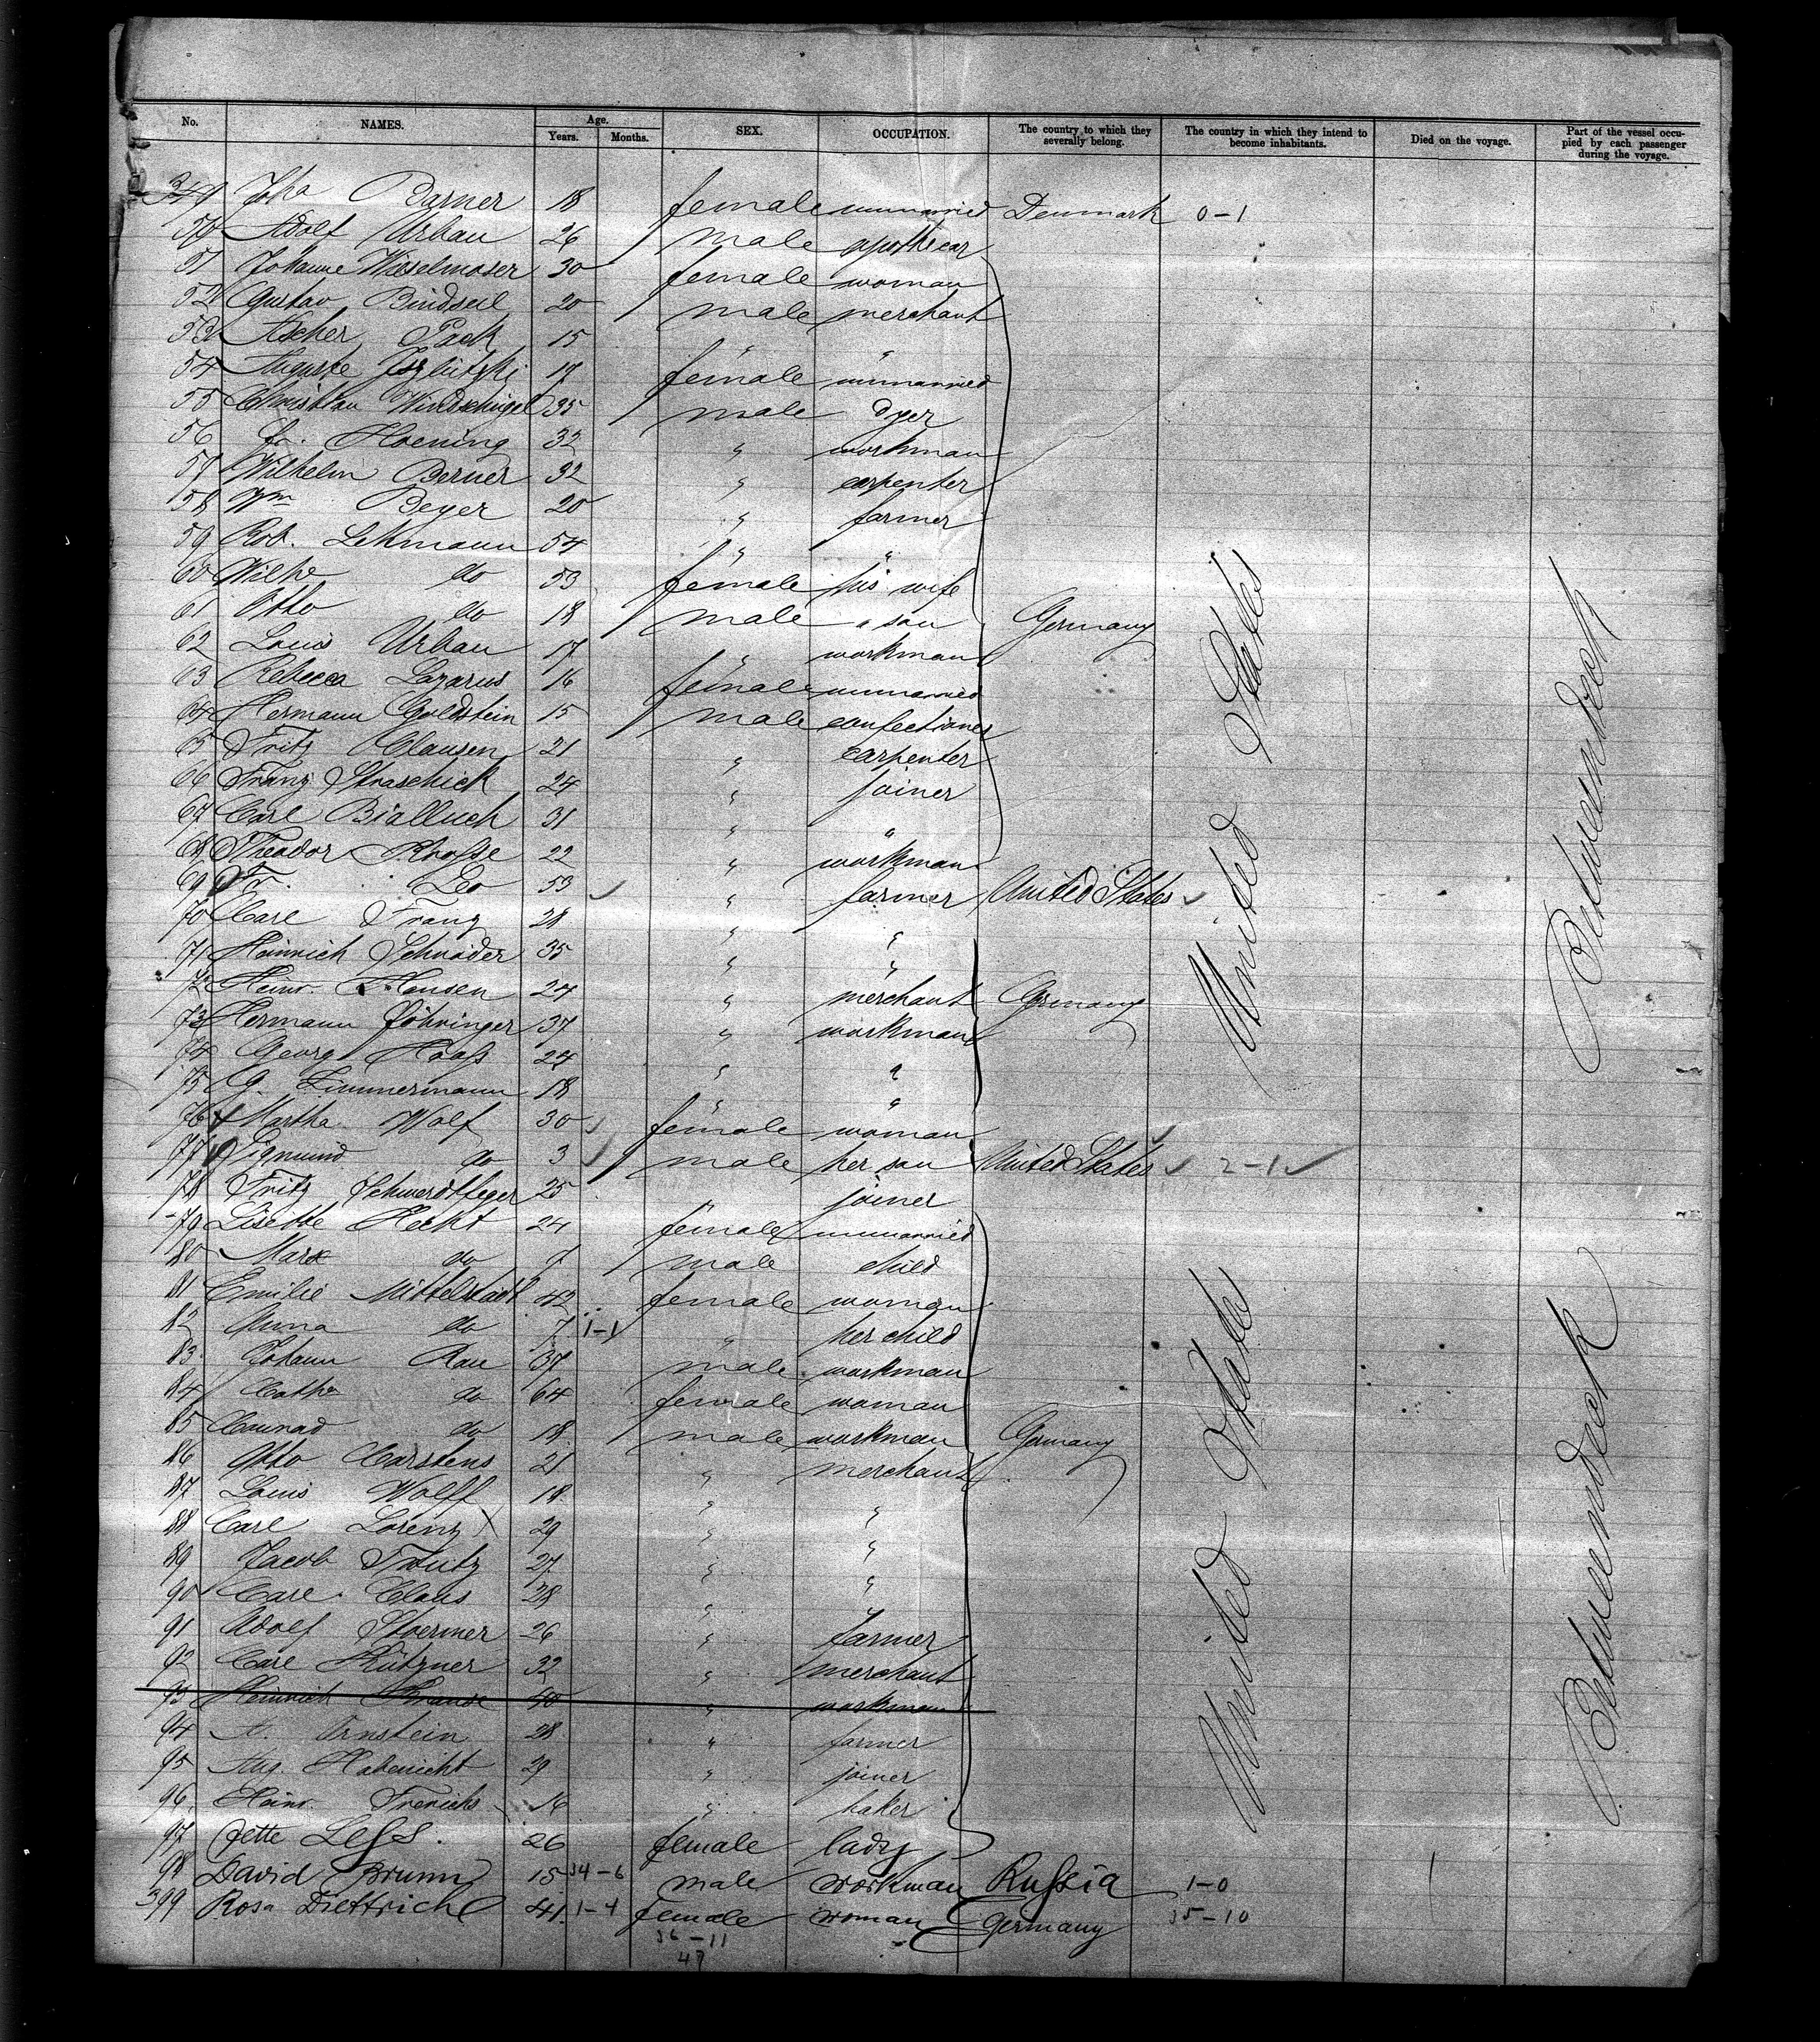 No. NAMES. Age. Years. Months. SEX. OCCUPATION. The country to which they severally belong. The country in which they intend to become inhabitants. Died on the voyage. Part of the vessel occupied by each passenger during the voyage.
349 Joha Barner 18 female unmarried Denmark 0-1
50 Adolf Urban 26 male apothecar
51 Johanne Wieselmoser 30 female woman
52 Gustav Bindseil 20 male merchant
53 Ascher Pack 15 " "
54 Auguste 17 female unmarried
55 Christian Windschügel 35 male dyer
56 Fr. Hoening 32 " workman
57 Wilhelm Berner 32 " carpenter
58 Wm Beyer 20 " farmer
59 Rob. Lehmann 54 " "
60 Wilhe do 53 female his wife
61 Otto do 18 male " son Germany
62 Louis Urban 17 " workman
63 Rebecca Lazarus 16 female unmarried
64 Hermann Goldstein 15 male confectioner
65 Fritz Clausen 21 " carpenter
66 Franz Straschick 24 " joiner
67 Carl Bialluch 31 " "
68 Theodor 22 " workman
69 Fr. Leo 53 " farmer United States
70 Carl Franz 28 " "
71 Heinrich Schnöder 35 " "
72 Heinr. Hansen 24 " merchant Germany
73 Hermann Föhringer 37 " workman
74 Georg Haass 24 " "
75 G. Zimmermann 18 " "
76 Martha Wolf 30 female woman
77 Sigmund do 3 male her son United States 2-1
78 Fritz Schwerdtfeger 25 " joiner
79 Lisette Hecht 24 female unmarried
80 Marx do 7 male child
81 Emilie Mittelstadt 42 female woman
82 Anna do 7 1-1 " her child
83 Johann Rau 37 male workman
84 Cathe do 64 female woman
85 Conrad do 18 male workman Germany
86 Otto Carstens 21 " merchant
87 Louis Wolff 18 " "
88 Carl Lorenz X 29 " "
89 Jacob Trautz 27 " "
90 Carl Claus 28 " "
91 Adolf Stoermer 26 " farmer
92 Carl Kützner 32 " merchant
93 Heinrich 40 " workman
94 A. Ornstein 28 " farmer
95 Aug. Habenicht 29 " joiner
96 Heinr. Frerichs 16 " baker
97 Jette Less. 26 female lady
98 David Brumm 15 34-6 male workman Russia 1-0
399 Rosa Diettrich 41 1-4 female woman Germany 35-10
36-11
47
United States
United States
Betweendeck
Betweendeck